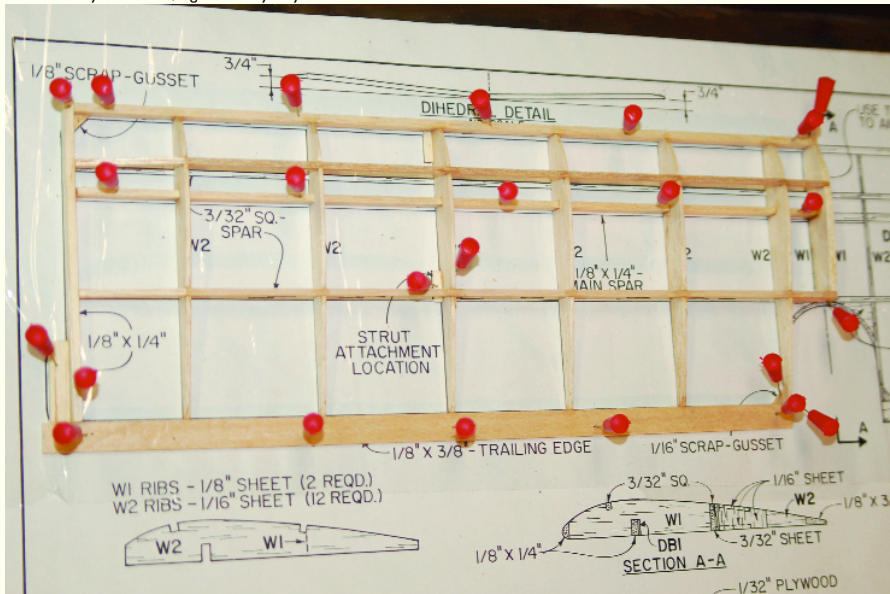 3/4"
1/8" SCRAP-GUSSET
DIHEDRAL DETAIL
3/4"
A
USE
TO
3/32" SQ.-
SPAR
W2
W2
W2
1/8" X 1/4"-
MAIN SPAR
W2
W1
W1
W2
1/8" X 1/4"
STRUT
ATTACHMENT
LOCATION
A
1/8" X 3/8"-TRAILING EDGE
1/16" SCRAP-GUSSET
W1 RIBS - 1/8" SHEET (2 REQD.)
W2 RIBS - 1/16" SHEET (12 REQD.)
W2
W1
3/32" SQ.
1/16" SHEET
W2
W1
1/8" X 3
1/8" X 1/4"
DB1
3/32" SHEET
SECTION A-A
1/32" PLYWOOD